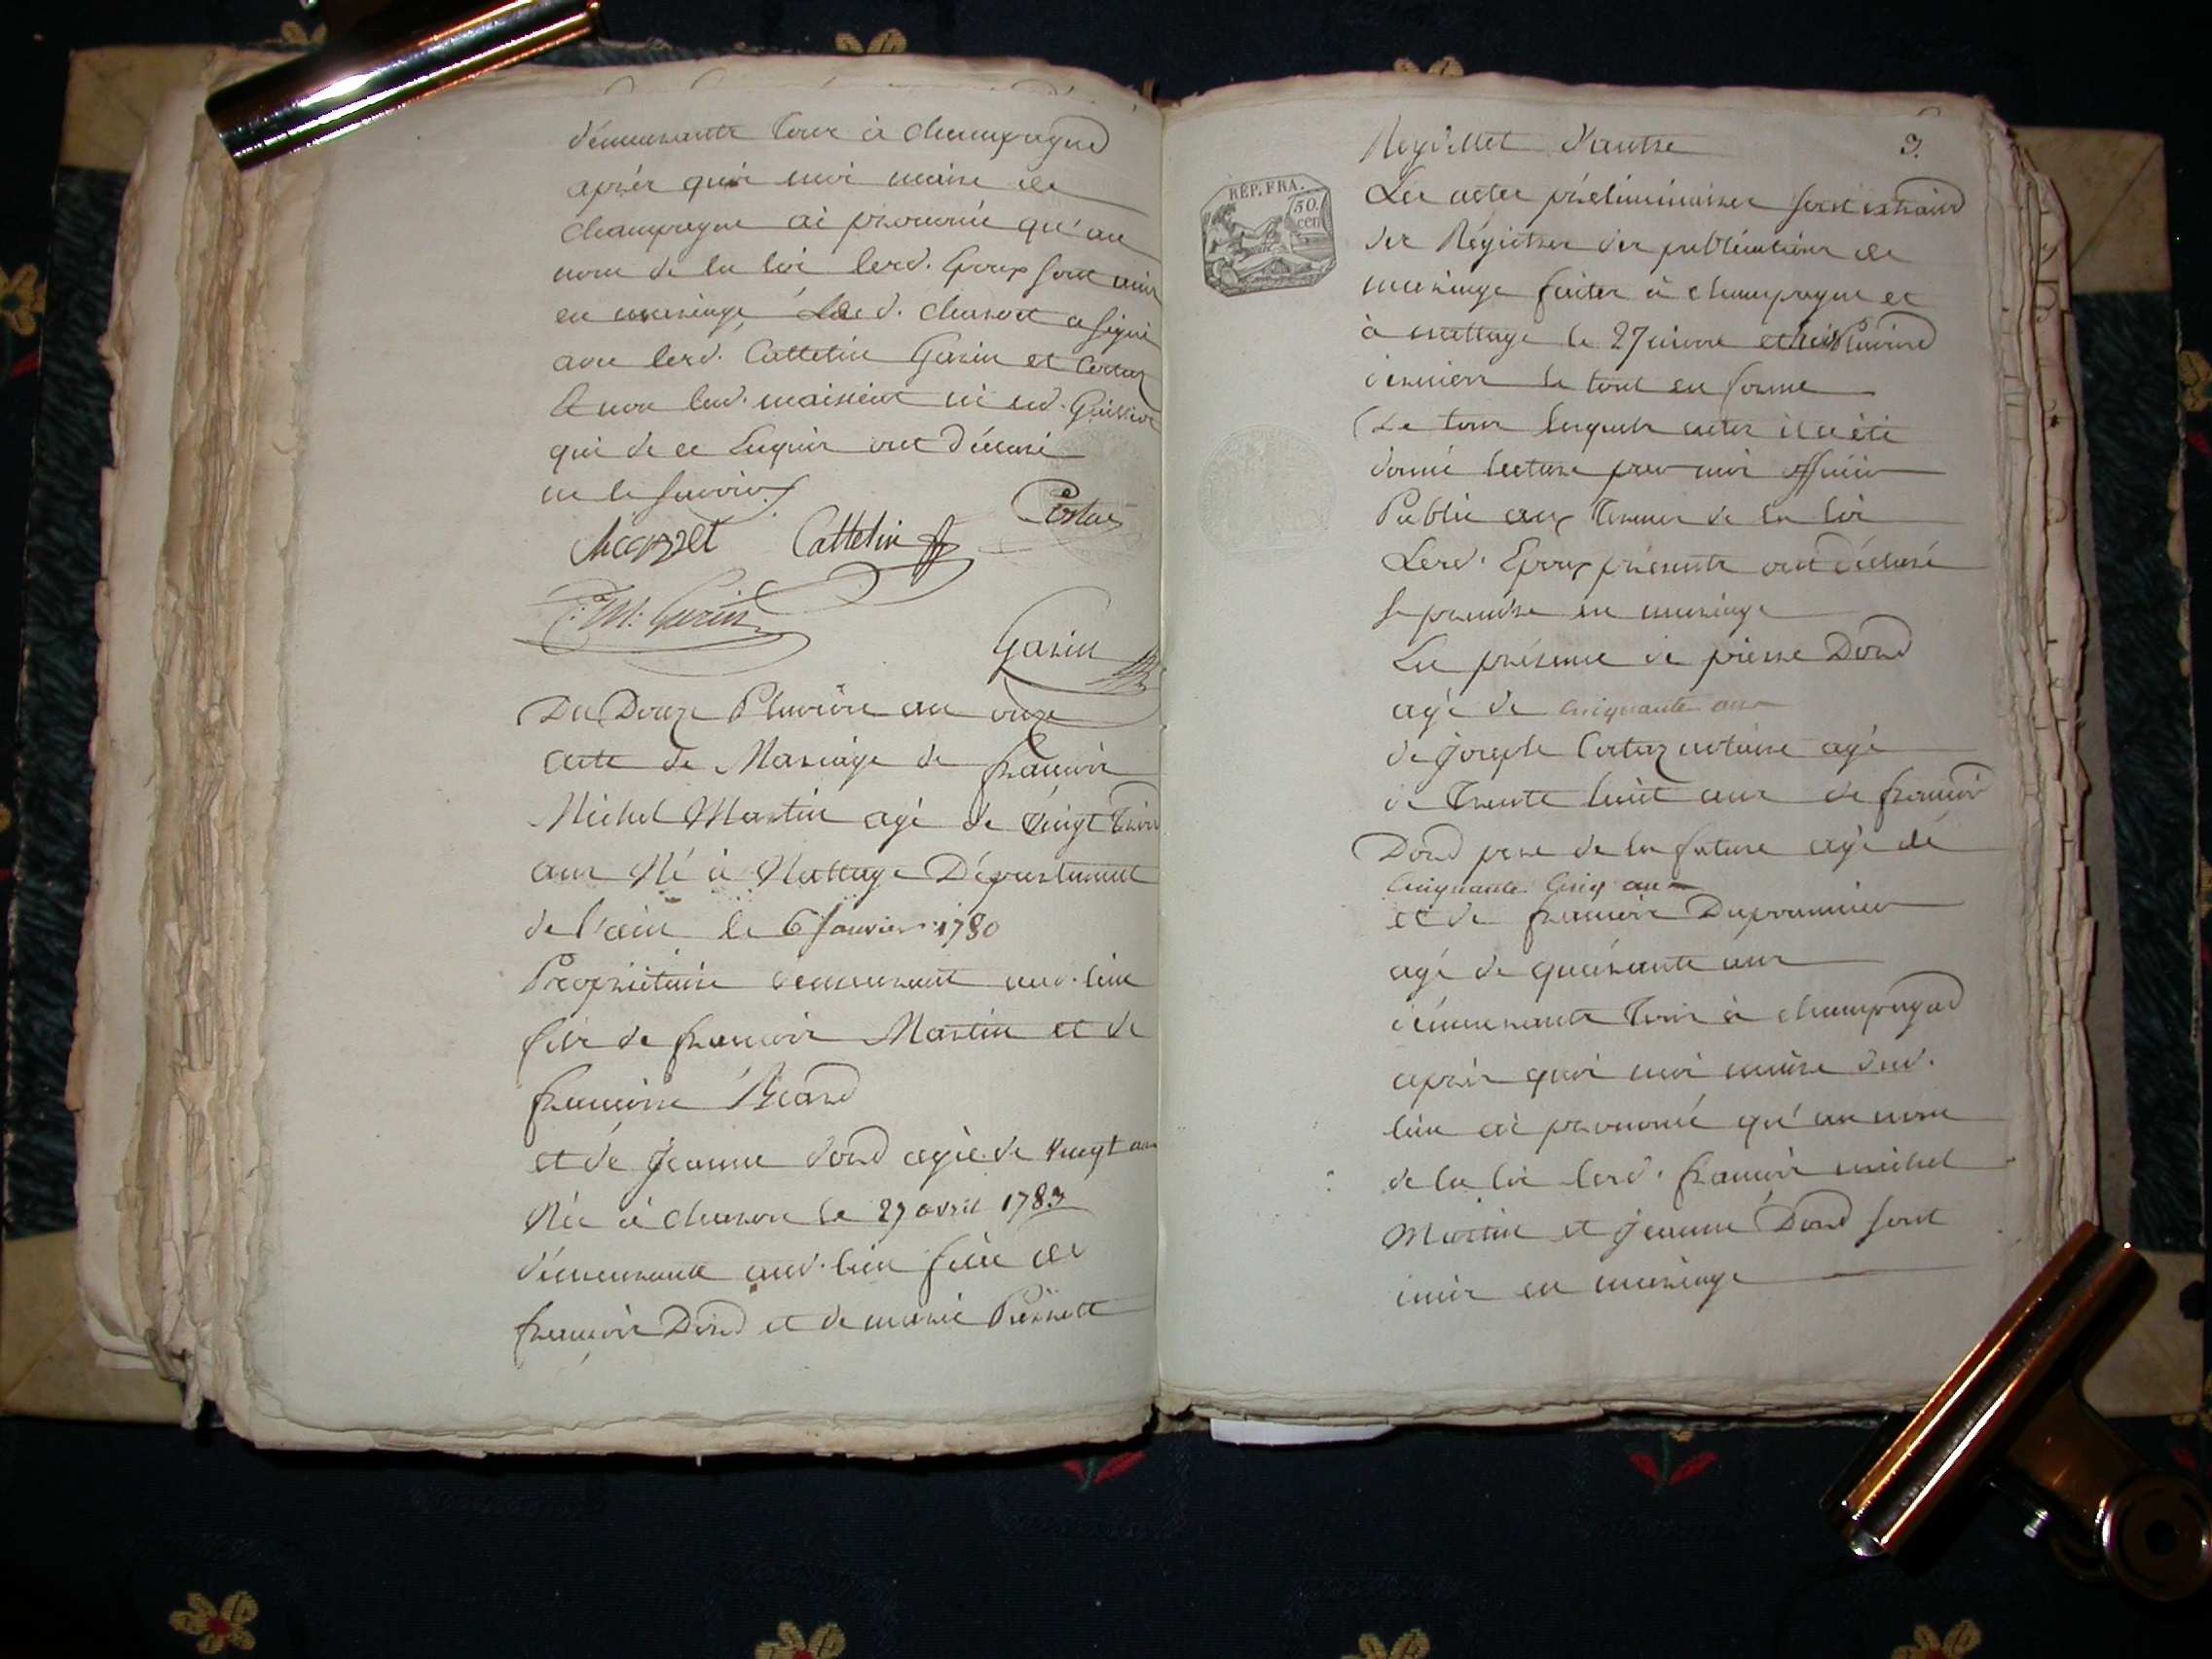 démeurants tous à champagne
après quoi moi maire de
champagne ai prononcé qu'au
nom de la loi lesd. Epoux sont unis
en mariage led. a signé
avec lesd. Cattelin Garin et Certaz
&
qui de ce Enquis ont déclaré
ne le savoir
Cattelin Certaz
P. M. Garin
Garin
Du Douze Pluviose an onze
acte de Mariage de françois
Michel Martin agé de vingt trois
ans Né à Nattage Département
de l'ain le 6 Janvier 1780
Propriétaire demeurant aud. lieu
fils de françois Martin et de
françoise Picard
et de Jeanne Dond agée de vingt ans
Née à le 27 avril 1783
démeurante aud. lieu fille de
françois Dond et de marie
3.
REP. FRA.
50.
cen
Les actes préliminaires sont extraits
des Régistres des publications de
mariage faites à champagne et
à nattage le 27 nivose et
dernier le tout en forme
De tous lesquels actes il a été
donné lecture par moi officier
Public aux termes de la loi
Lesd. Epoux présents ont déclaré
se prendre en mariage
En présence de pierre Dond
agé de cinquante ans
de Joseph Certaz notaire agé
de Trente huit ans de françois
Dond pere de la future agé de
Cinquante Cinq ans
et de françois Duprommier
agé de quarante ans
démeurants Tous à champagne
après quoi moi maire dud.
lieu ai prononcé qu'au nom
de la loi lesd. françois michel
Martin et Jeanne Dond sont
unis en mariage